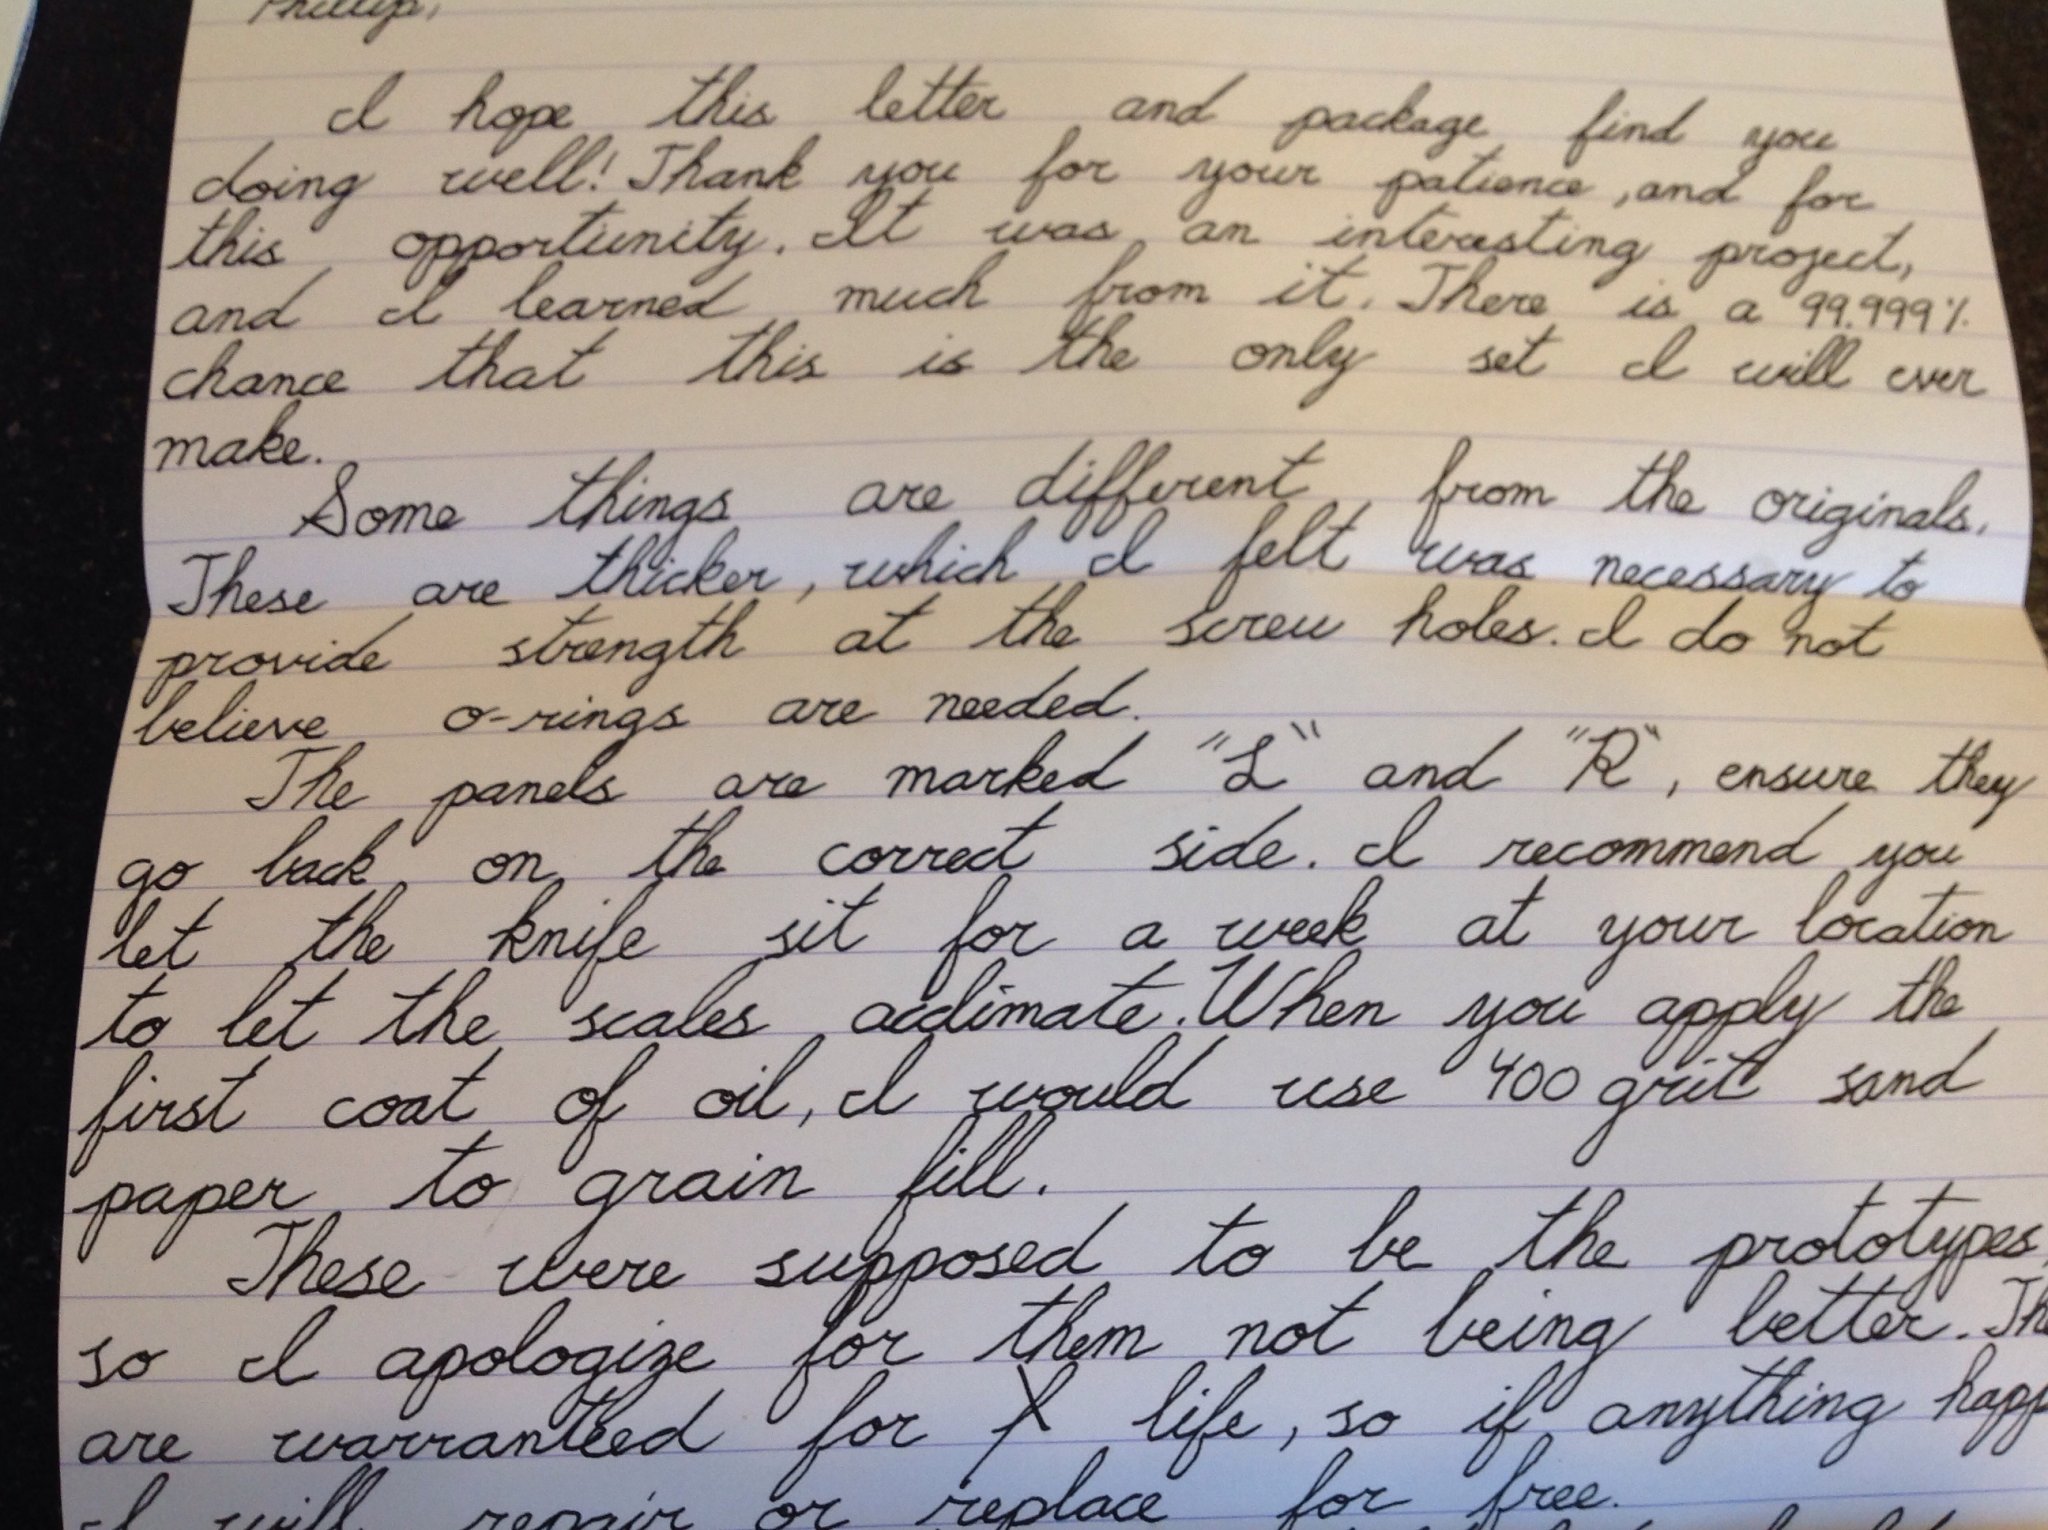 Phillip,
I hope this letter and package find you
doing well! Thank you for your patience, and for
this opportunity. It was an interesting project,
and I learned much from it. There is a 99.999%
chance that this is the only set I will ever
make.
Some things are different from the originals.
These are thicker, which I felt was necessary to
provide strength at the screw holes. I do not
believe o-rings are needed.
The panels are marked "L" and "R", ensure they
go back on the correct side. I recommend you
let the knife sit for a week at your location
to let the scales acclimate. When you apply the
first coat of oil, I would use 400 grit sand
paper to grain fill.
These were supposed to be the prototypes,
so I apologize for them not being better. Th
are warranteed for life, so if anything happ
I will repair or replace for free.